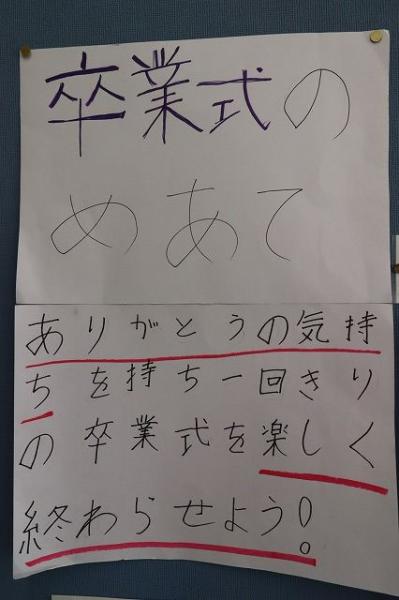 卒業式の
めあて
ありがとうの気持
ちを持ち一回きり
の卒業式を楽しく
終わらせよう!